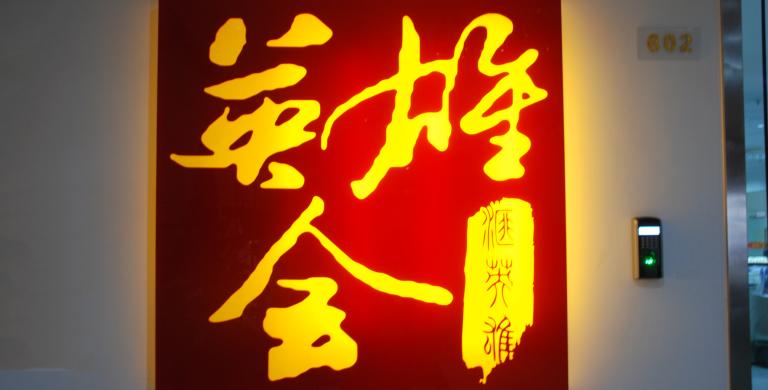 英雄
会
匯英雄
602